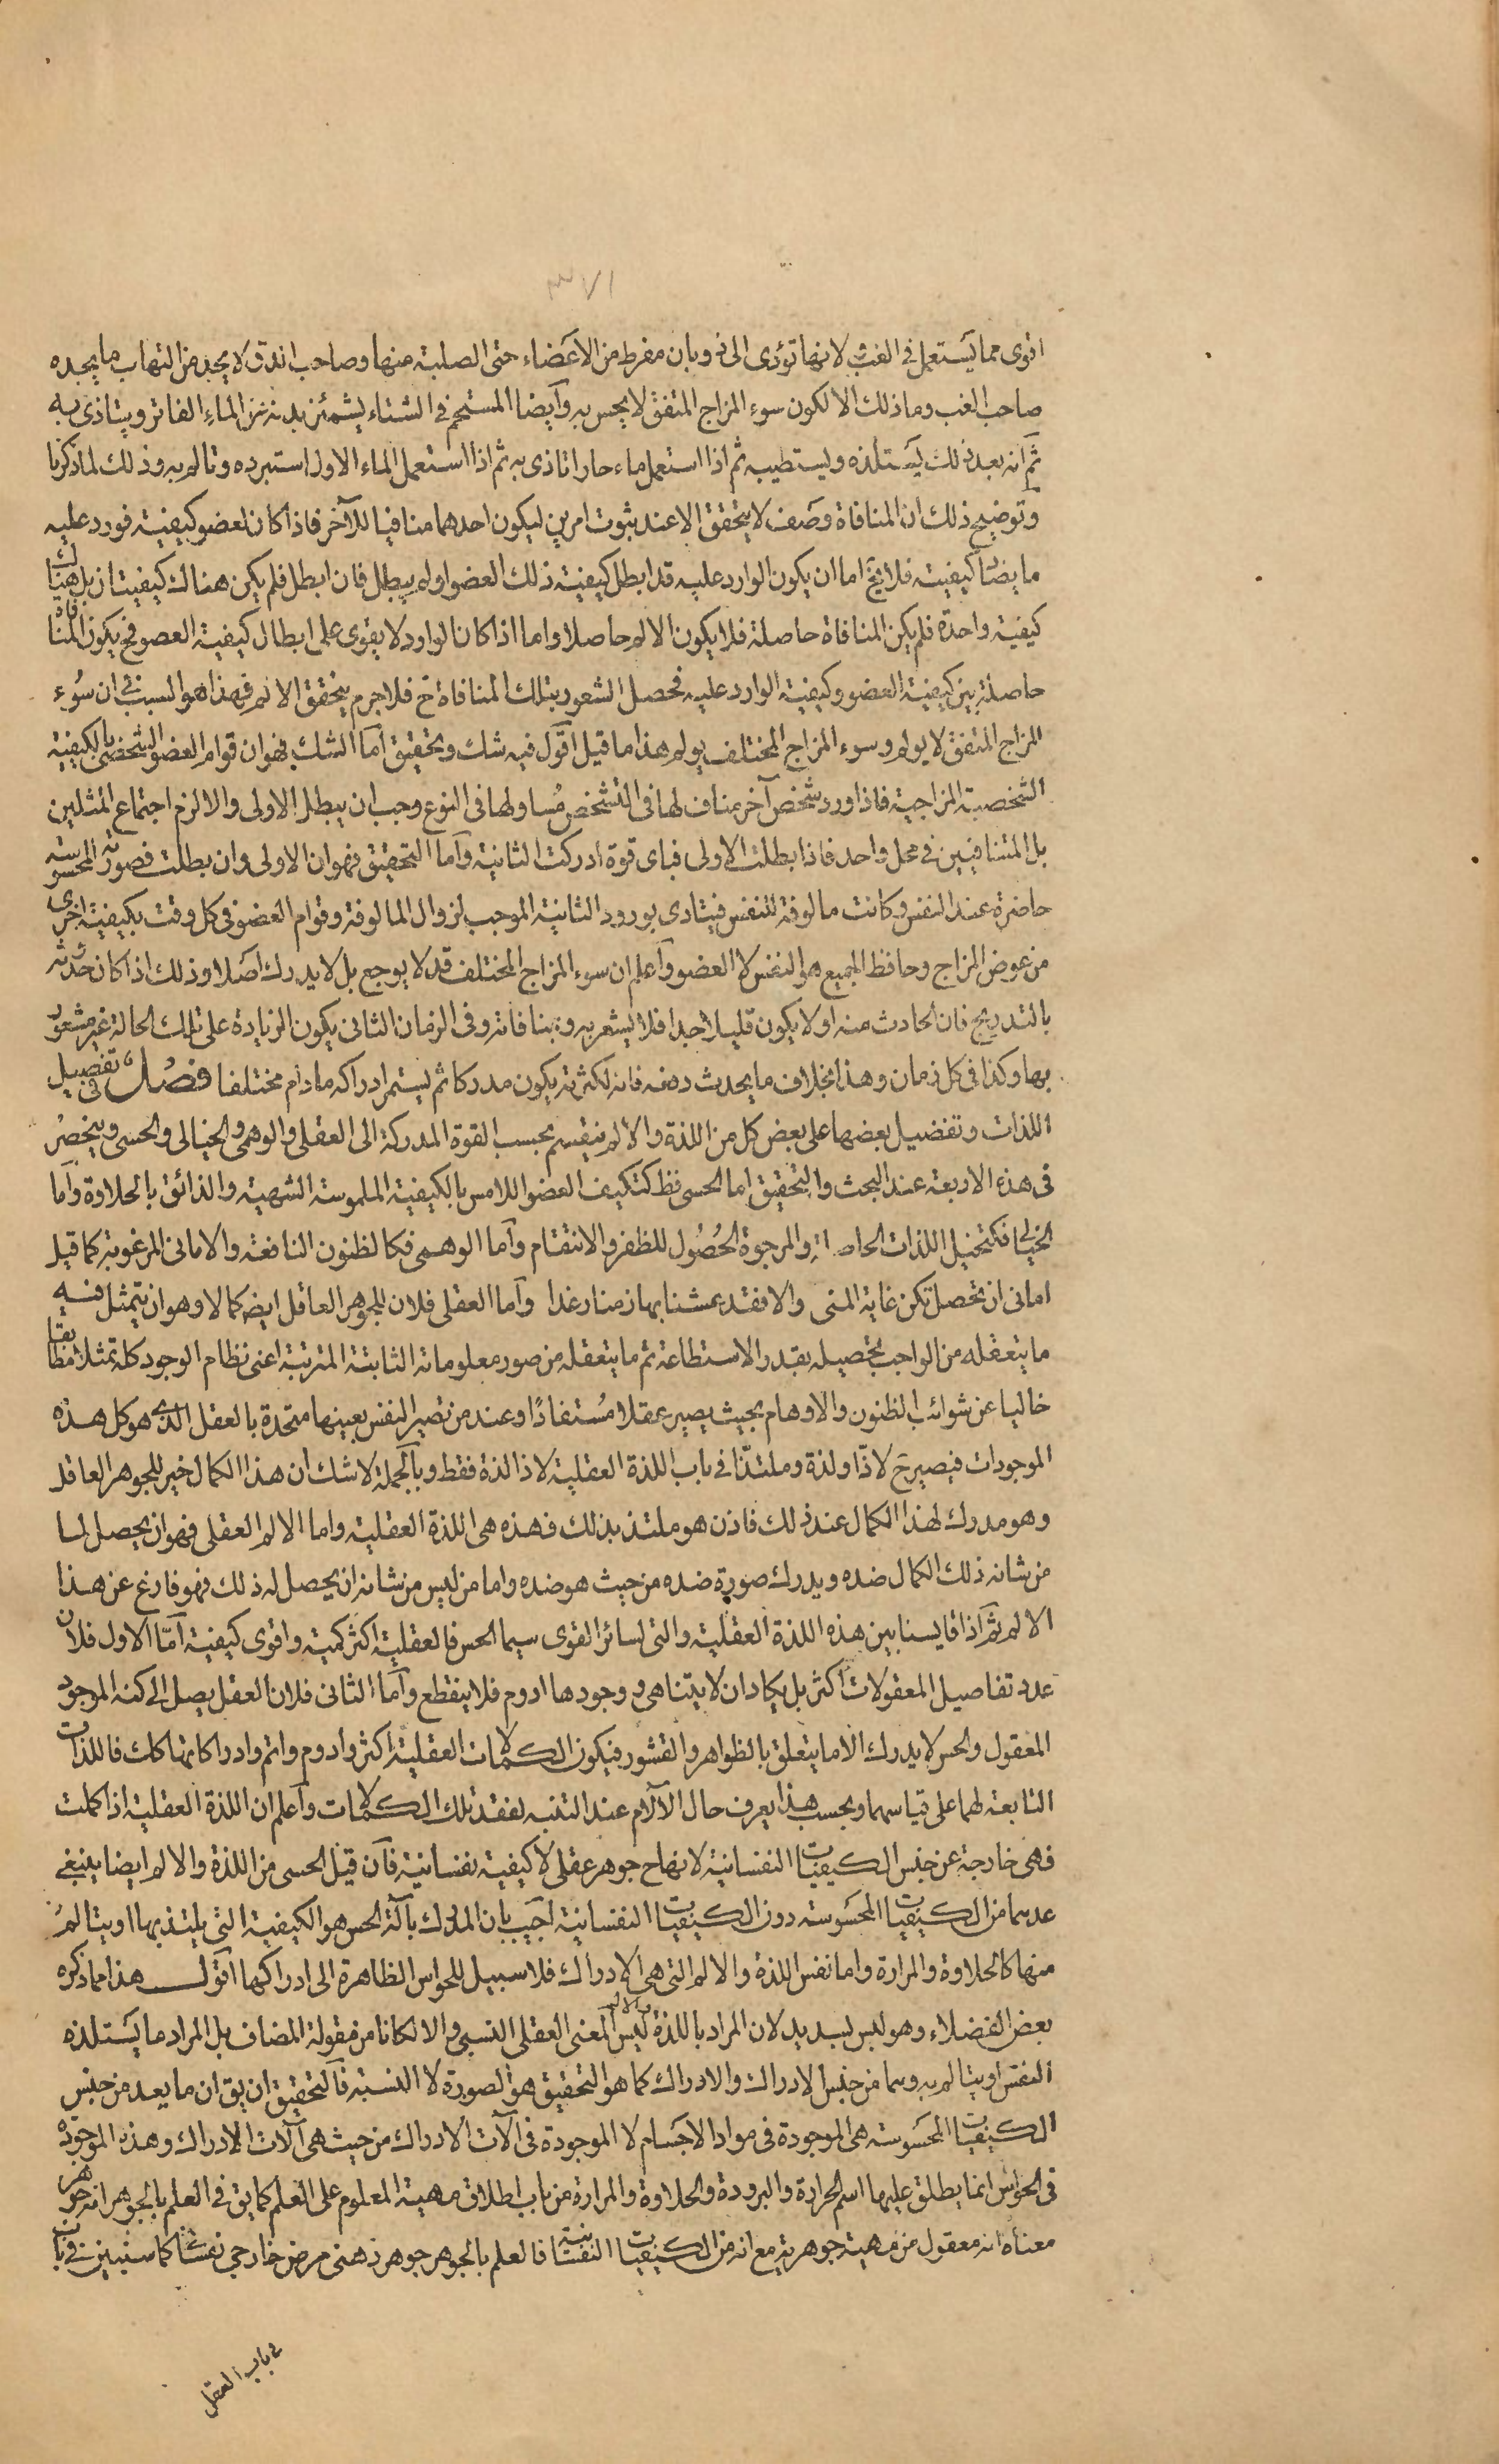 ٣٧١
اقوى مما يستعمل في الغب لانها تؤدى الى ذوبان مفرط من الاعضاء حتى الصلبة منها وصاحب الدق لا يجد من التهاب ما يجده
صاحب الغب وما ذلك الا لكون سوء المزاج المتفق لا يحس به وايضا المستحم في الشتاء يشمئز بدنه من الماء الفاتر ويتاذى به
ثم انه بعد ذلك يستلذه ويستطيبه ثم اذا استعمل ماء حارا تاذى به ثم اذا استعمل الماء الاول استبرده وتالم به وذلك لما ذكرنا
وتوضيح ذلك ان المنافاة وصف لا يتحقق الا عند ثبوت امرين ليكون احدهما منافيا للآخر فاذا كان لعضو كيفية فورد عليه
ما يضاد كيفيته فلا يخ اما ان يكون الوارد عليه قد ابطل كيفية ذلك العضو او لم يبطل فان ابطل فلم يكن هناك كيفيتان بل هناك
كيفية واحدة فلم يكن المنافاة حاصلة فلا يكون الالم حاصلا واما اذا كان الوارد لا يقوى على ابطال كيفية العضو فح يكون المنافاة
حاصلة بين كيفية العضو وكيفية الوارد عليه فحصل الشعور بتلك المنافاة ح فلا جرم يتحقق الالم فهذا هو السبب في ان سوء
المزاج المتفق لا يولم وسوء المزاج المختلف يولم هذا ما قيل اقول فيه شك وتحقيق اما الشك فهو ان قوام العضو الشخصى بالكيفية
الشخصية المزاجية فاذا ورد شخص آخر مناف لها في التشخص مساو لها في النوع وجب ان يبطل الاولى والا لزم اجتماع المثلين
بل المتنافيين في محل واحد فاذا بطلت الاولى فباى قوة ادركت الثانية واما التحقيق فهو ان الاولى وان بطلت فصورته المحسوسة
حاضرة عند النفس وكانت مالوفة للنفس فيتاذى بورود الثانية الموجب لزوال المالوفة وقوام العضو في كل وقت بكيفية اخرى
من عوض المزاج وحافظ الجميع هو النفس لا العضو واعلم ان سوء المزاج المختلف قد لا يوجع بل لا يدرك اصلا وذلك اذا كان حدوثه
بالتدريج فان الحادث منه اولا يكون قليلا جدا فلا يشعر به وبمنافاته وفى الزمان الثانى يكون الزيادة على تلك الحالة غير مشعور
بها وكذا في كل زمان وهذا بخلاف ما يحدث دفعه فانه لكثرته يكون مدركا ثم يستمر ادراكه ما دام مختلفا فصل في تفصيل
اللذات وتفضيل بعضها على بعض كل من اللذة والالم ينقسم بحسب القوة المدركة الى العقلى والوهمى والخيالى والحسى وينحصر
في هذه الاربعة عند البحث والتحقيق اما الحسى فظ كتكيف العضو اللامس بالكيفية الملموسة الشهية والذائق بالحلاوة واما
الخيالى فكتخيل اللذات الحاصلة والمرجوة الحصول للظفر والانتقام واما الوهمى فكالظنون النافعة والامانى المرغوبة كما قيل
امانى ان تحصل تكن غاية المنى والا فقد عشنا بها زمنا رغدا واما العقلى فلان للجوهر العاقل ايضه كمالا وهو ان يتمثل فيه
ما يتعقله من الواجب بتحصيله بقدر الاستطاعة ثم ما يتعقله من صور معلوماته الثابتة المترتبة اعنى نظام الوجود كله تمثلا مطابقا
خاليا عن شوائب الظنون والاوهام بحيث يصير عقلا مستفادًا وعند من تصير النفس بعينها متحدة بالعقل الذى هو كل هذه
الموجودات فيصير ح لاذّا ولذة وملتذّا في باب اللذة العقلية لا ذا لذة فقط وبالجملة لا شك ان هذا الكمال خير للجوهر العاقل
وهو مدرك لهذا الكمال عند ذلك فاذن هو ملتذ بذلك فهذه هى اللذة العقلية واما الالم العقلى فهو ان يحصل لما
من شانه ذلك الكمال ضده ويدرك صورة ضده من حيث هو ضده واما من ليس من شانه ان يحصل له ذلك فهو فارغ عن هذا
الالم ثم اذا قايسنا بين هذه اللذة العقلية والتى لسائر القوى سيما الحس فالعقلية اكثر كمية واقوى كيفية امّا الاول فلان
عدد تفاصيل المعقولات اكثر بل يكاد ان لا يتناهى ووجودها ادوم فلا ينقطع واما الثانى فلان العقل يصل الى كنه الموجود
المعقول والحس لا يدرك الا ما يتعلق بالظواهر والقشور فيكون الكمالات العقلية اكثر وادوم واتم وادراكاتها كك فاللذات
التابعة لهما على قياسهما وبحسب هذا يعرف حال الآلام عند التنبه لفقد تلك الكمالات واعلم ان اللذة العقلية اذا كملت
فهى خارجة عن جنس الكيفيات النفسانية لانها ح جوهر عقلى لا كيفية نفسانية فان قيل الحسى من اللذة والالم ايضا ينبغى
عدهما من الكيفيات المحسوسة دون الكيفيات النفسانية اجيب بان المدرك بآلة الحس هو الكيفية التى يلتذ بها او يتالم
منها كالحلاوة والمرارة واما نفس اللذة والالم التى هى الادراك فلا سبيل للحواس الظاهرة الى ادراكها اقول هذا مما ذكره
بعض الفضلاء وهو ليس بسديد لان المراد باللذة والالم ليس المعنى العقلى النسبى والا لكانا من مقولة المضاف بل المراد ما يستلذه
النفس او يتالم به وهما من جنس الادراك والادراك كما هو التحقيق هو الصورة لا النسبة فالتحقيق ان يق ان ما يعد من جنس
الكيفيات المحسوسة هى الموجودة في مواد الاجسام لا الموجودة في الآت الادراك من حيث هى آلات الادراك وهذه الموجودة
في الحواس انما يطلق عليها اسم الحرارة والبرودة والحلاوة والمرارة من باب اطلاق مهية المعلوم على العلم كما يق في العلم بالجوهر انه جوهر
معناه انه معقول من مهية جوهرية مع انه من الكيفيات النفسانية فالعلم بالجوهر جوهر ذهنى عرض خارجى نفسانى كما سنبين في باب
في باب العقل